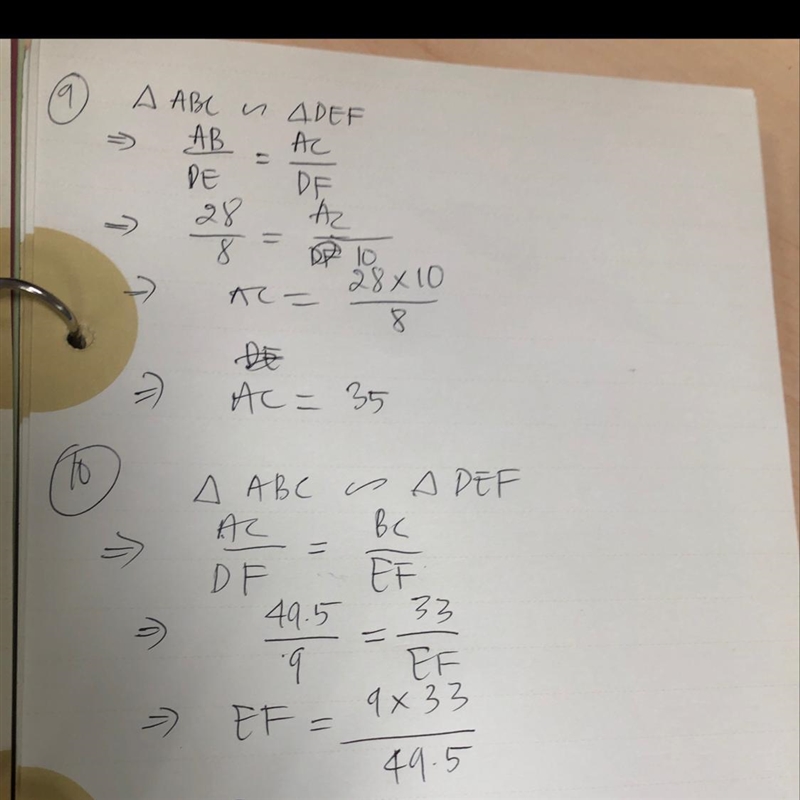 9 △ ABC ∽ △DEF
⇒ AB/DE = AC/DF
⇒ 28/8 = AC/10
⇒ AC = 28×10/8
⇒ AC = 35
10 △ ABC ∽ △ DEF
⇒ AC/DF = BC/EF
⇒ 49.5/9 = 33/EF
⇒ EF = 9×33/49.5